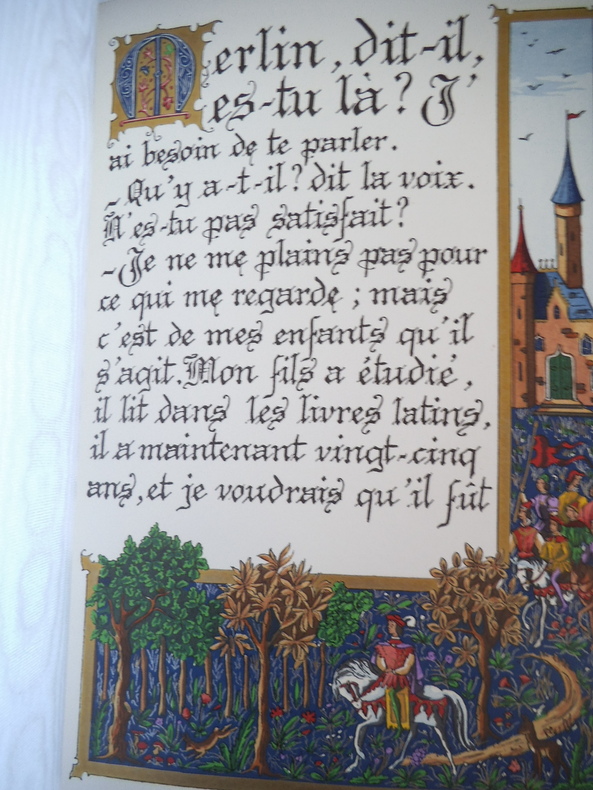 Merlin, dit-il,
es-tu là? J'
ai besoin de te parler.
- Qu'y a-t-il? dit la voix.
N'es-tu pas satisfait?
- Je ne me plains pas pour
ce qui me regarde; mais
c'est de mes enfants qu'il
s'agit. Mon fils a étudié,
il lit dans les livres latins,
il a maintenant vingt-cinq
ans, et je voudrais qu'il fût